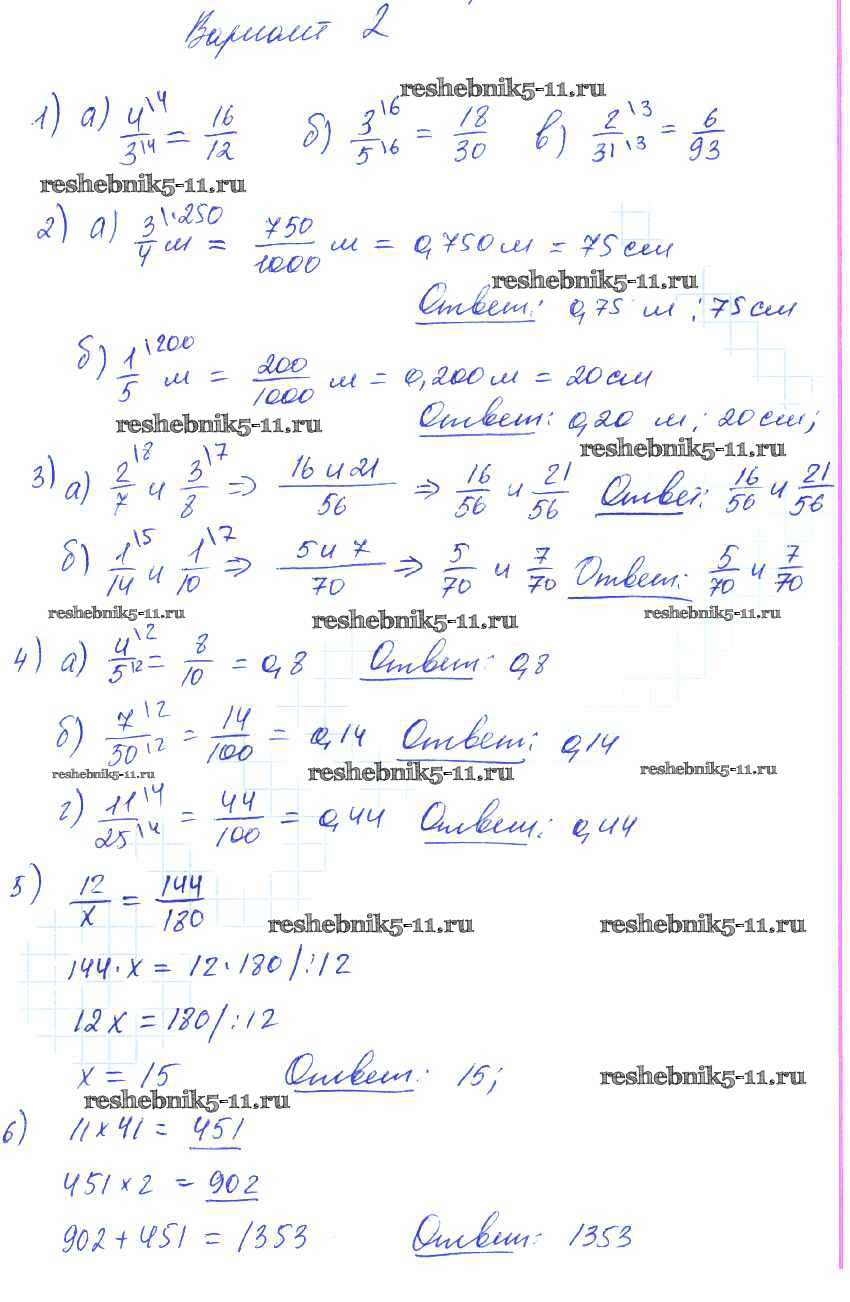 Вариант 2
reshebnik5-11.ru
1) а) 4\4/3\4 = 16/12 б) 3\6/5\6 = 18/30 в) 2\3/31\3 = 6/93
reshebnik5-11.ru
2) а) 3\250/4 м = 750/1000 м = 0,750 м = 75 см
reshebnik5-11.ru
Ответ: 0,75 м ; 75 см
б) 1\200/5 м = 200/1000 м = 0,200 м = 20 см
reshebnik5-11.ru Ответ: 0,20 м; 20 см;
reshebnik5-11.ru
3) а) 2\8/7 и 3\7/8 => 16 и 21/56 => 16/56 и 21/56 Ответ: 16/56 и 21/56
б) 1\5/14 и 1\7/10 => 5 и 7/70 => 5/70 и 7/70 Ответ: 5/70 и 7/70
reshebnik5-11.ru reshebnik5-11.ru reshebnik5-11.ru
4) а) 4\2/5\2 = 8/10 = 0,8 Ответ: 0,8
б) 7\2/50\2 = 14/100 = 0,14 Ответ: 0,14
reshebnik5-11.ru reshebnik5-11.ru reshebnik5-11.ru
г) 11\4/25\4 = 44/100 = 0,44 Ответ: 0,44
5) 12/x = 144/180
reshebnik5-11.ru reshebnik5-11.ru
144·x = 12·180 /:12
12x = 180 /:12
x = 15 Ответ: 15;
reshebnik5-11.ru
reshebnik5-11.ru
6) 11×41 = 451
451×2 = 902
902+451 = 1353 Ответ: 1353